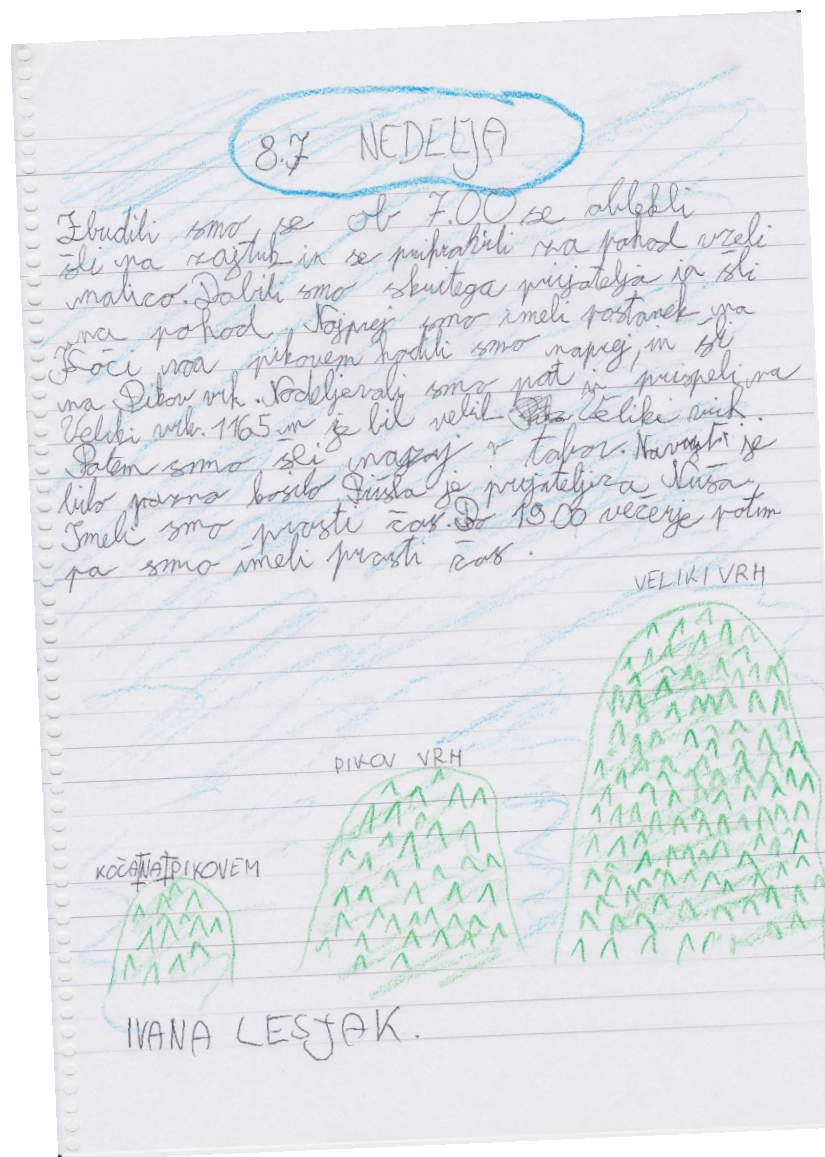 8.7 NEDELJA
Zbudili smo se ob 7.00 se oblekli
šli na zajtrk in se pripravili za pohod vzeli
malico. Dobili smo skritega prijatelja in šli
na pohod. Najprej smo imeli postanek na
Koči na pikovem hodili smo naprej, in šli
na Pikov vrh. Nadeljevali smo pot in prispeli na
Veliki vrh. 1165 m je bil velik Veliki vrh.
Potem smo šli nazaj v tabor. Na vrsti je
bilo pozno kosilo. Prišla je prijateljica Nuša.
Imeli smo prosti čas. Do 19.00 večerje potem
pa smo imeli prosti čas.
VELIKI VRH
PIKOV VRH
KOČA NA PIKOVEM
IVANA LESJAK.